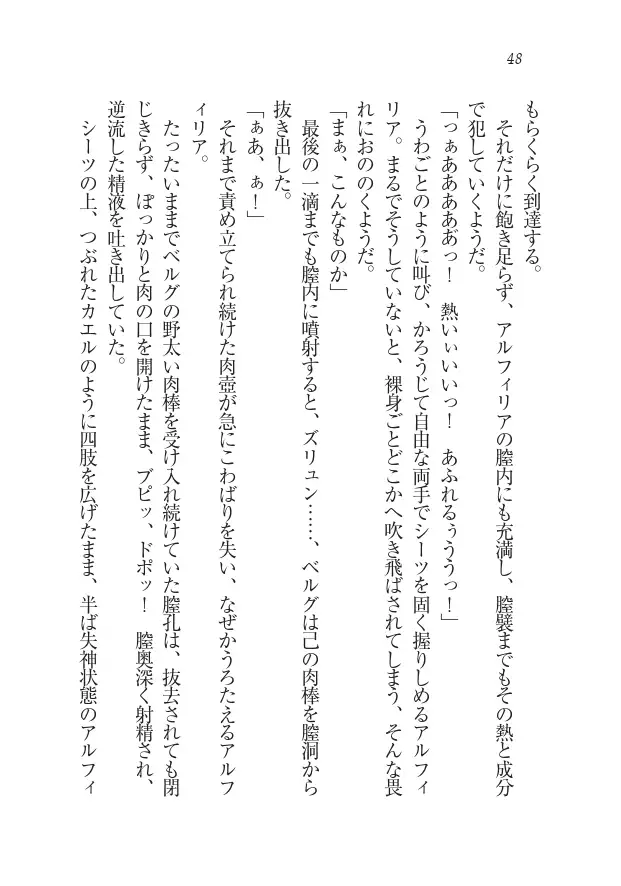 48
もらくらく到達する。
それだけに飽き足らず、アルフィリアの膣内にも充満し、膣襞までもその熱と成分
で犯していくようだ。
「っぁああああ゛っ！　熱いぃいいっ！　あふれるぅううっ！」
うわごとのように叫び、かろうじて自由な両手でシーツを固く握りしめるアルフィ
リア。まるでそうしていないと、裸身ごとどこかへ吹き飛ばされてしまう、そんな畏
れにおののくようだ。
「まぁ、こんなものか」
最後の一滴までも膣内に噴射すると、ズリュン……、ベルグは己の肉棒を膣洞から
抜き出した。
「ぁあ、ぁ！」
それまで責め立てられ続けた肉壺が急にこわばりを失い、なぜかうろたえるアルフ
ィリア。
たったいままでベルグの野太い肉棒を受け入れ続けていた膣孔は、抜去されても閉
じきらず、ぽっかりと肉の口を開けたまま、ブピッ、ドポッ！　膣奥深く射精され、
逆流した精液を吐き出していた。
シーツの上、つぶれたカエルのように四肢を広げたまま、半ば失神状態のアルフィ